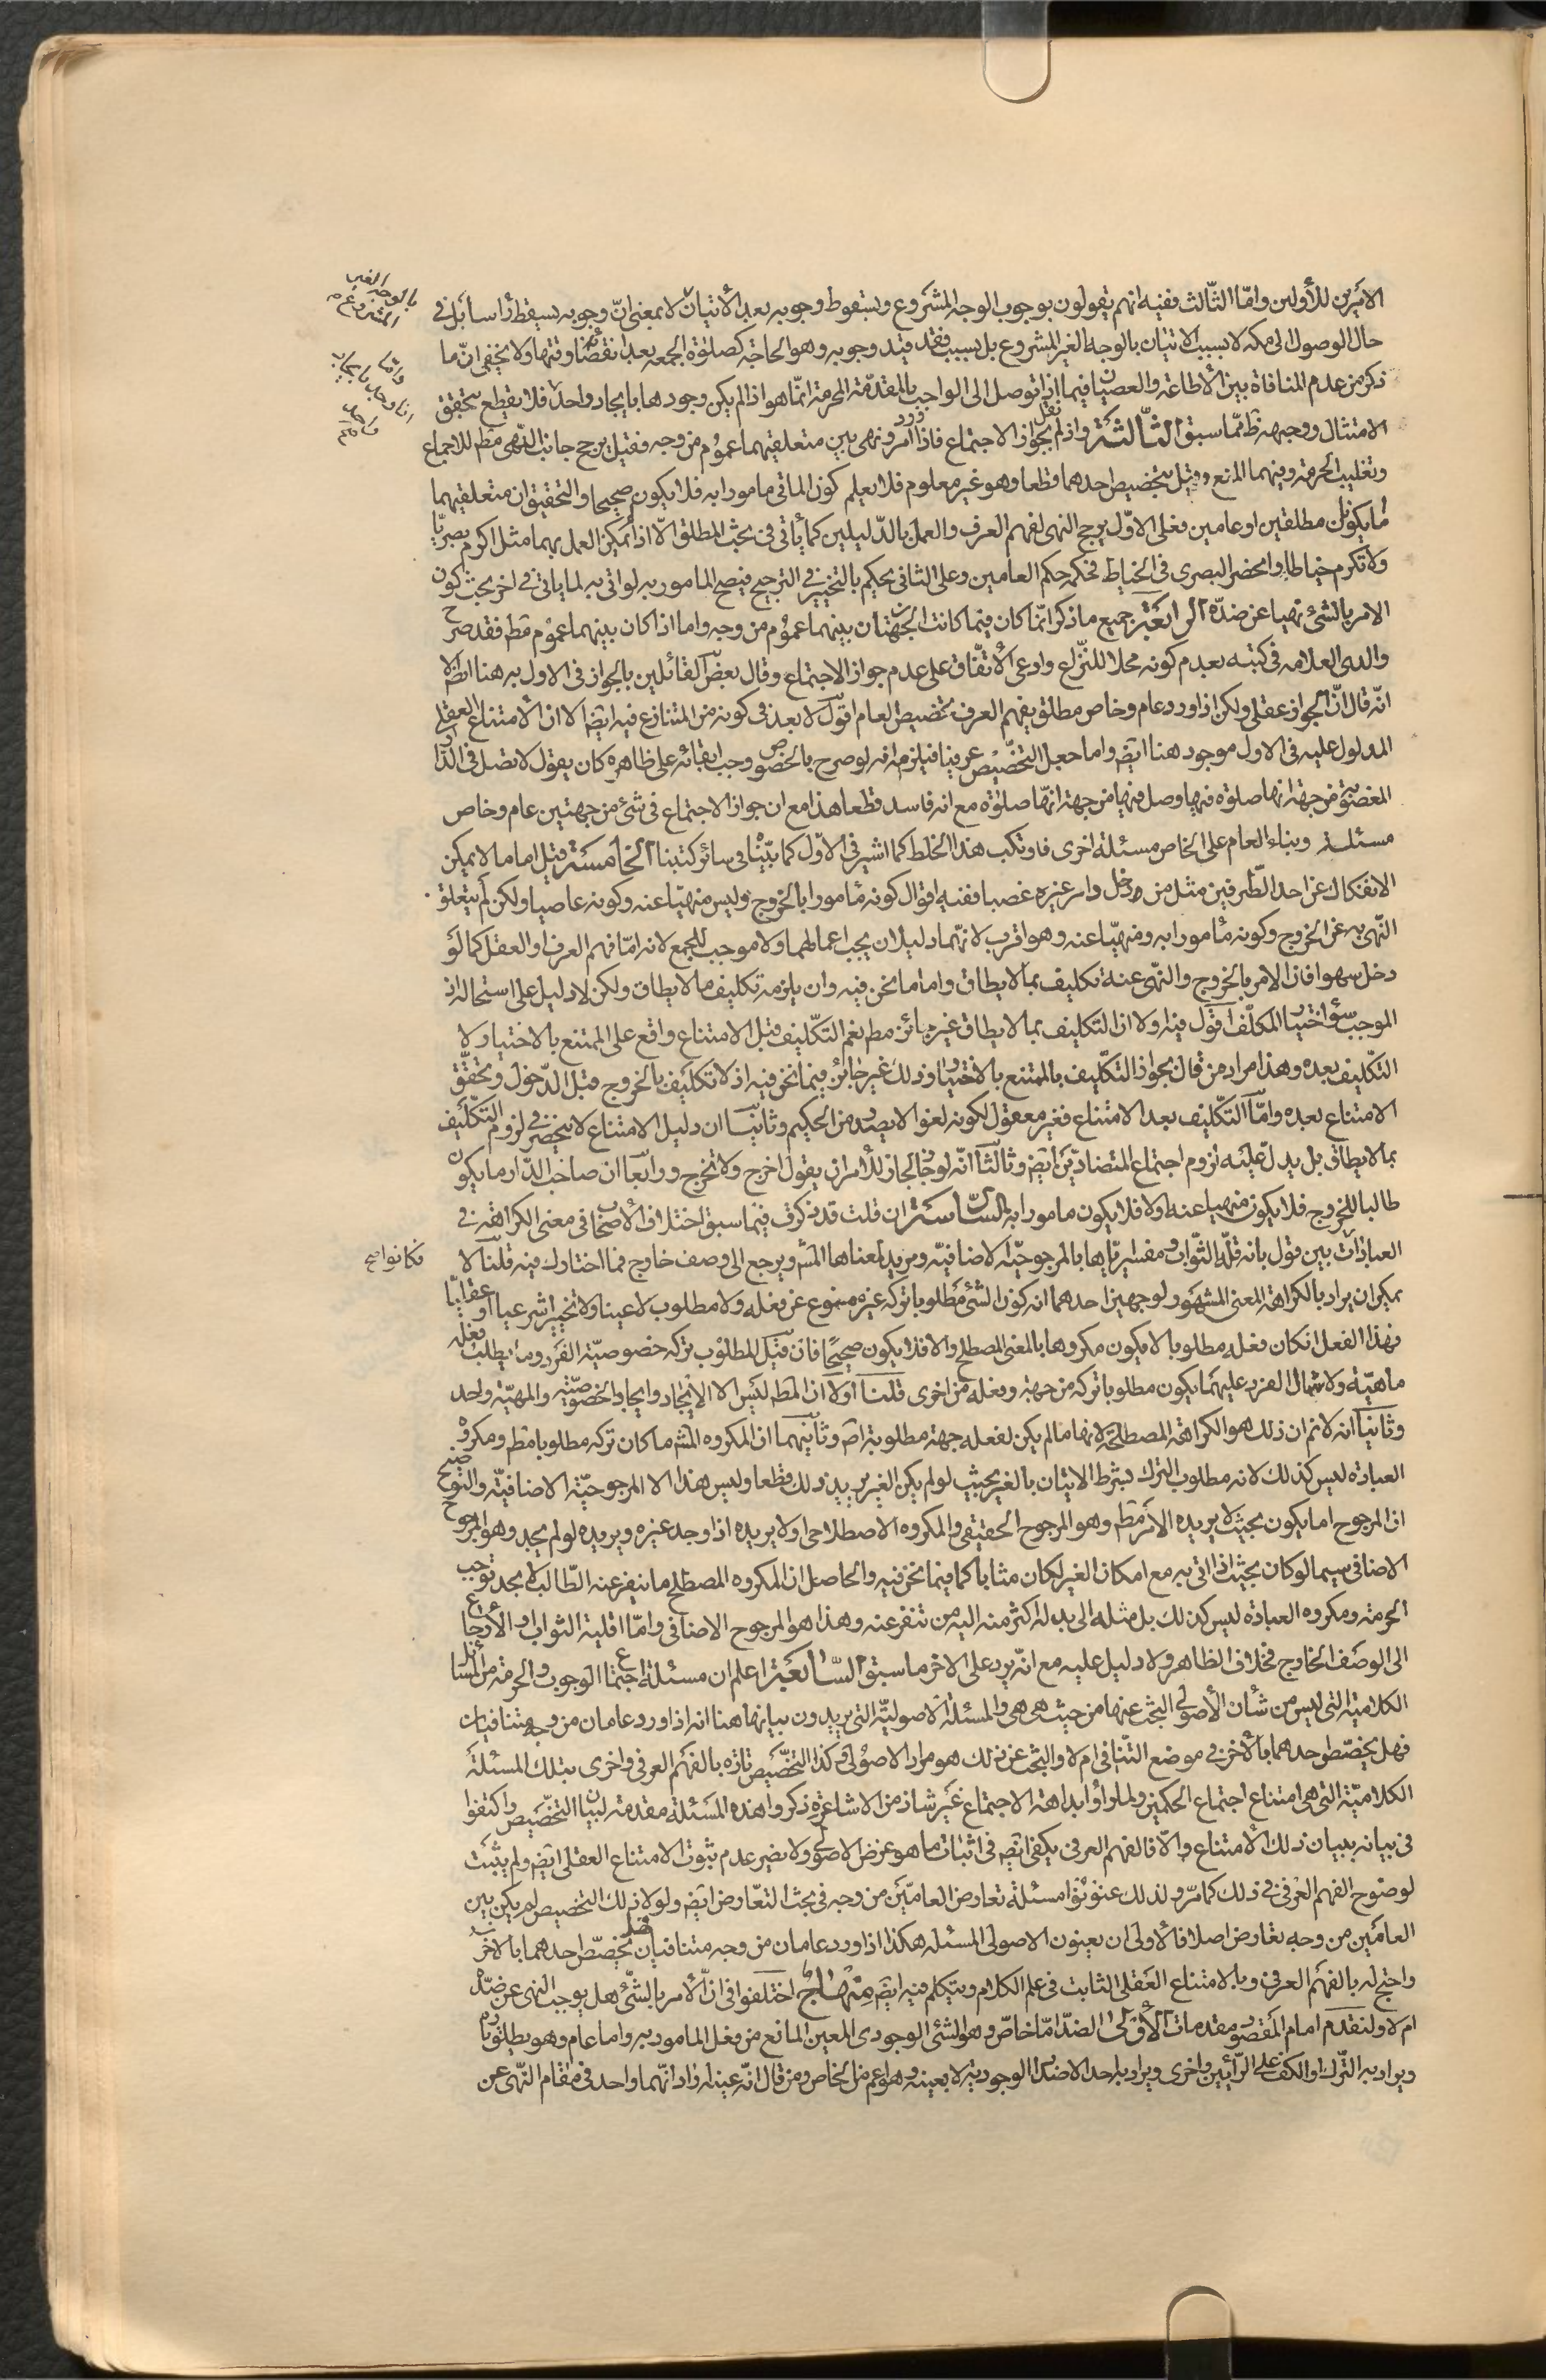 الامرين للأولين وامّا الثّالث ففيه انهم يقولون بوجوب الوجه المشروع وبسقوط وجوبه بعد الأتيان لا بمعنى انّ وجوبه يسقط رأسا بل فى
حال الوصول الى مكه لا بسبب الاتيان بالوجه الغير المشروع بل بسبب فقد قيد وجوبه وهو الحاجة كصلوة الجمعه بعد انقضاء وقتها ولا يخفى انّ ما
ذكر من عدم المنافاة بين الأطاعة والعصيان فيما اذا توصل الى الواجب بالمقدّمة المحرمة انّما هو اذا لم يكن وجودها بايجاد واحد فلا يقطع بتحقق
الامتثال ووجهه ظ ممّا سبق الثّالثة واذا لم نقل بجواز الاجتماع فاذا ورد امر ونهى بين متعلقيهما عموم من وجه فقيل يرجح جانب النّهى مط للاجماع
وتغليب الحرمة وفيهما المنع وقيل بتخصيص احدهما قطعا وهو غير معلوم فلا يعلم كون الماتى مامورا به فلا يكون صحيحا والتحقيق ان متعلقيهما
اما يكونان مطلقين او عامين فعلى الاوّل يرجح النهى لفهم العرف والعمل بالدّليلين كما يأتى فى بحث المطلق الّا اذا أمكن العمل بهما مثل اكرم بصريّا
ولا تكرم خياطا وانحصر البصرى فى الخياط فحكمه حكم العامين وعلى الثانى يحكم بالتخيير فى الترجيح فيصح المامور به لو اتى به لما ياتى فى اخر بحث كون
الامر بالشئ نهيا عن ضدّه الرابعة جميع ما ذكر انّما كان فيما كانت الجهتان بينهما عموم من وجه واما اذا كان بينهما عموم مط فقد صرح
والدى العلامه فى كتبه بعدم كونه محلا للنّزاع وادعى الأتّفاق على عدم جواز الاجتماع وقال بعض القائلين بالجواز فى الاول به هنا ايضا الا
انّه قال انّ الجواز عقلى ولكن اذا ورد عام وخاص مطلق يفهم العرف تخصيص العام اقول لا بعد فى كونه من المتنازع فيه ايضا الا ان الأمتناع العقلى
المدلول عليه فى الاول موجود هنا ايضا واما جعل التّخصيص عرفيا فيلزمه انه لو صرح بالخصوص وجب ابقائه على ظاهره كان يقول لا تصل فى الدّار
المغصوبة من جهة انها صلوة فيها وصل فيها من جهة انّها صلوة مع انه فاسد قطعا هذا مع ان جواز الاجتماع فى شئ من جهتين عام وخاص
مسئلة وبناء العام على الخاص مسئلة اخرى فارتكب هذا الخلط كما اشير فى الاوّل كما بيّنّا فى سائر كتبنا الخامسة قيل اما ما لا يمكن
الانفكاك عن احد الطّرفين مثل من دخل دار غيره غصبا ففيه اقوال كونه مأمورا بالخروج وليس منهيّا عنه وكونه عاصيا ولكن لم يتعلق
النّهى به عن الخروج وكونه مأمورا به ومنهيّا عنه وهو اقرب لانّهما دليلان يجب اعمالهما ولا موجب للجمع لانه امّا فهم العرف او العقل كما لو
دخل سهوا فان الامر بالخروج والنّهى عنه تكليف بما لا يطاق واما ما نحن فيه وان يلزمه تكليف ما لا يطاق ولكن لا دليل على استحالة اذ
الموجب سؤ اختيار المكلّف اقول فيه اولا ان التكليف بما لا يطاق غير جائز مط نعم التكليف قبل الامتناع واقع على الممتنع بالاختيار ولا
التكليف بعده وهذا مراد من قال بجواز التكليف بالممتنع بالاختيار وذلك غير جائز فيما نحن فيه اذ لا تكليف بالخروج قبل الدّخول وتحقّق
الامتناع بعده وامّا التّكليف بعد الامتناع فغير معقول لكونه لغوا لا يصدر من الحكيم وثانيا ان دليل الامتناع لا ينحصر فى لزوم التّكليف
بما لا يطاق بل يدل عليه لزوم اجتماع المتضادّين ايضا وثالثا انّه لو جاز لجاز للأمر ان يقول اخرج ولا تخرج ورابعا ان صاحب الدّار ما يكون
طالبا للخروج فلا يكون منهيا عنه والا فلا يكون مامورا به السّادسة ان قلت قد ذكرت فيما سبق اختلاف الأصحاب فى معنى الكراهة فى
العبادات بين قول بانه قلّة الثّواب ومفسر ايّاها بالمرجوحيّة الاضافيّه ومريد لمعناها المش ويرجع الى وصف خارج فما اختارك فيه قلنا لا
يمكن ان يراد بالكراهة المعنى المشهور لوجهين احدهما انه كون الشئ مطلوبا تركه غيره ممنوع عن فعله ولا مطلوب لا عينا ولا تخييرا شرعيا او عقليّا
فهذا الفعل ان كان فعله مطلوبا لا يكون مكروها بالمعنى المصطلح والا فلا يكون صحيحًا فان قيل المطلوب تركه خصوصيّة الفرد وما يطلب فعله
ماهيّة ولاشتمال الفرد عليهما يكون مطلوبا تركه من جهة وفعله من اخرى قلنا اولا ان المط ليس الا الايجاد وايجاد الخصوصيّة والمهيّة واحد
وثانيا انه لا نم ان ذلك هو الكراهة المصطلحة لانها ما لم يكن لفعله جهة مطلوبية اص وثانيهما ان المكروه المش ما كان تركه مطلوبا مط ومكروه
العبادة ليس كذلك لانه مطلوب الترك بشرط الاتيان بالغير بحيث لو لم يكن الغير يريد ذلك قطعا وليس هذا الا المرجوحيّة الاضافيّة والتوضيح
ان المرجوح اما يكون بحيث لا يريده الامر مط وهو المرجوح الحقيقى والمكروه الاصطلاحى او لا يريده اذا وجد غيره ويريده لو لم يجد وهو المرجوح
الاضافى سيما لو كان بحيث اذا اتى به مع امكان الغير لكان مثابا كما فيما نحن فيه والحاصل ان المكروه المصطلح ما ينفر عنه الطّالب لا بحد توجب
الحرمة ومكروه العبادة ليس كذلك بل مثله الى بدله اكثر منه اليه من تنفر عنه وهذا هو المرجوح الاضافى وامّا اقلية الثواب والأرجاع
الى الوصف الخارج فخلاف الظاهر ولا دليل عليه مع انّه يرد على الاخر ما سبق السّابعة اعلم ان مسئلة اجتماع الوجوب والحرمة من المسائل
الكلاميّة التى ليس من شأن الأصولى البحث عنها من حيث هى هى والمسئلة الاصوليّة التى يريدون بيانها هنا انه اذا ورد عامان من وجه متنافيان
فهل يخصّص احدهما بالأخر فى موضع التّنافى ام لا والبحث عن ذلك هو مراد الاصولى وكذا التخصيص تارة بالفهم العرفى واخرى بتلك المسئلة
الكلاميّة التى هى امتناع اجتماع الحكمين ولما راوا بداهة الاجتماع غير شاذ من الاشاعرة ذكروا هذه المسئلة مقدمة لبيان التخصيص واكتفوا
فى بيانه ببيان ذلك الأمتناع والّا فالفهم العرفى يكفى ايضا فى اثبات ما هو غرض الاصولى ولا يضير عدم ثبوت الامتناع العقلى ايضا ولم يثبت
لوضوح الفهم العرفى فى ذلك كما مرّ ولذلك عنونوا مسئلة تعارض العامّين من وجه فى بحث التعارض ايضا ولولا ذلك التخصيص لم يكن بين
العامّين من وجه تعارض اصلا فالأولى ان يعنون الاصولى المسئلة هكذا اذا ورد عامان من وجه متنافيان فهل يخصّص احدهما بالاخر
واحتج له بالفهم العرفى وبالامتناع العقلى الثابت فى علم الكلام ويتكلم فيه ايضا منهاج اختلفوا فى انّ الأمر بالشّئ هل يوجب النهى عن ضدّه
ام لا ولنقدم امام المقصود مقدمات الأولى الضدّ امّا خاصّ وهو الشئ الوجودى المعين المانع من فعل المامور به واما عام وهو يطلق تارة
ويراد به التّرك او الكفّ على الرّأيين واخرى ويراد به احد الاضداد الوجودية لا بعينه وهو اعم من الخاص ومن قال انّه عينه اراد انّهما واحد فى مقام النّهى عن
بالوجه الغير
المشروع
واما
اذا وجدا بايجاد
واحد
فكانواصح